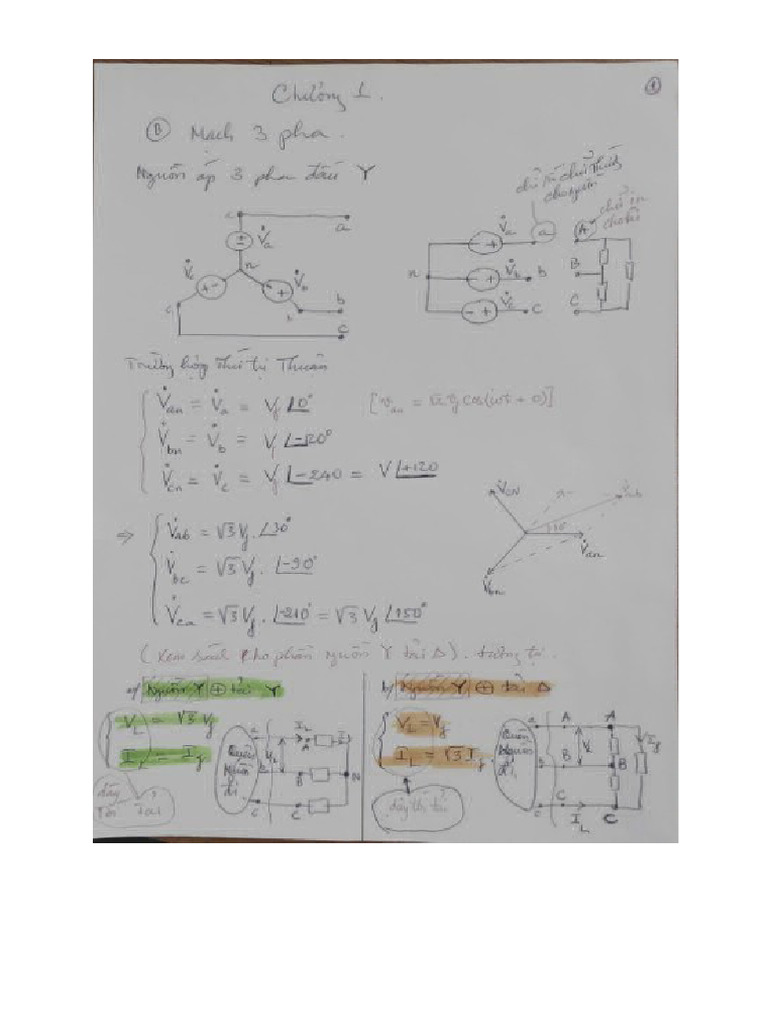 ①
Chương 1.
Ⓑ Mạch 3 pha.
Nguồn áp 3 pha đấu Y
c
a
V̇a
n
V̇c
V̇b
b
c
V̇a
a
A
n
V̇b
b
B
V̇c
c
C
Trường hợp thứ tự Thuận
V̇an = V̇a = Vf ∠0°
V̇bn = V̇b = Vf ∠-120°
V̇cn = V̇c = Vf ∠-240 = V ∠+120
[van = √2 Vf cos(wt + 0)]
V̇CN
V̇ab
30°
V̇an
V̇bn
⇒ V̇ab = √3 Vf . ∠30°
V̇bc = √3 Vf . ∠-90°
V̇ca = √3 Vf . ∠-210° = √3 Vf ∠150°
(Xem sách cho phần nguồn Y tải Δ). tương tự.
a/ Nguồn Y ⊕ tải Y
VL = √3 Vf
IL = If
dây tới tải
Quên nguồn đi
a
IL
A
If
VL
b
B
N
c
C
b/ Nguồn Y ⊕ tải Δ
VL = Vf
IL = √3 If
dây tới tải
Quên nguồn đi
a
A
A
VL
If
b
B
B
c
C
IL
C